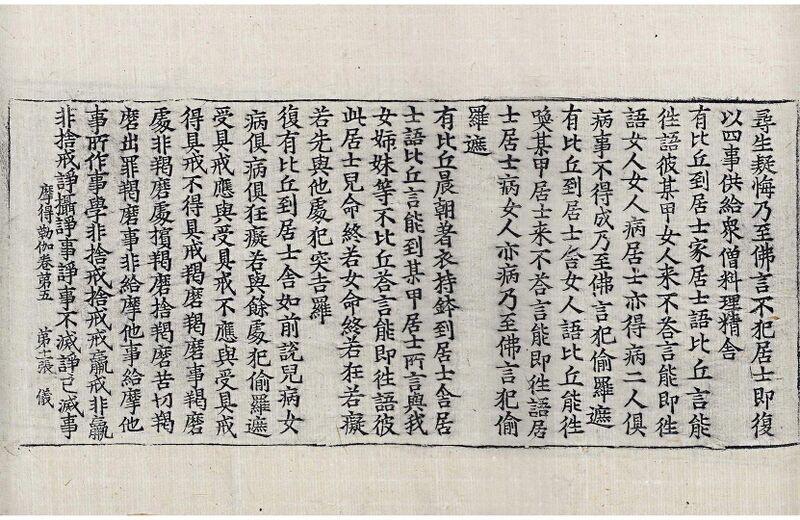 尋生疑悔乃至佛言不犯居士即復
以四事供給衆僧料理精舍
有比丘到居士家居士語比丘言能
徃語彼某甲女人来不荅言能即徃
語女人女人病居士亦得病二人俱
病事不得成乃至佛言犯偷羅遮
有比丘到居士舍女人語比丘能徃
喚某甲居士来不荅言能即徃語居
士居士病女人亦病乃至佛言犯偷
羅遮
有比丘晨朝著衣持鉢到居士舍居
士語比丘言能到某甲居士所言與我
女姊妹等不比丘荅言能即徃語彼
此居士兒命終若女命終若狂若癡
若先與他處犯突吉羅
復有比丘到居士舍如前說兒病女
病俱病俱狂癡若與餘處犯偷羅遮
受具戒應與受具戒不應與受具戒
得具戒不得具戒羯磨羯磨事羯磨
處非羯磨處擯羯磨捨羯磨苦切羯
磨出罪羯磨事非給摩他事給摩他
事所作事學非捨戒捨戒戒羸戒非羸
非捨戒諍攝諍事諍事不滅諍已滅事
摩得勒伽卷第五 第十張 儀